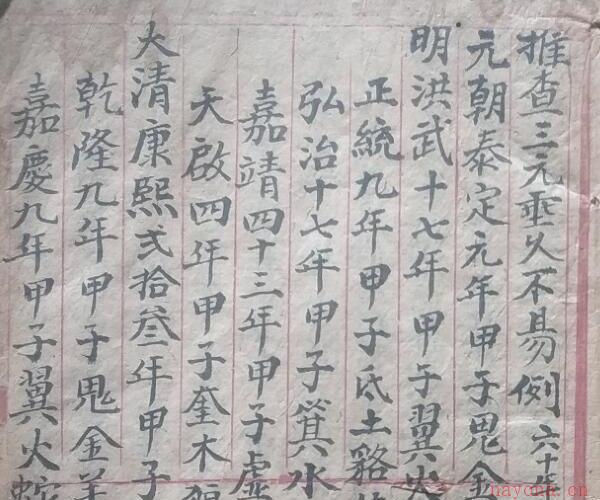 推查三元垂久不易例六十
元朝泰定元年甲子鬼金
明洪武十七年甲子翼火
正統九年甲子氐土貉
弘治十七年甲子箕水
嘉靖四十三年甲子虛
天啟四年甲子奎木狼
大清康熙弍拾叁年甲子
乾隆九年甲子鬼金羊
嘉慶九年甲子翼火蛇
hayona.cn